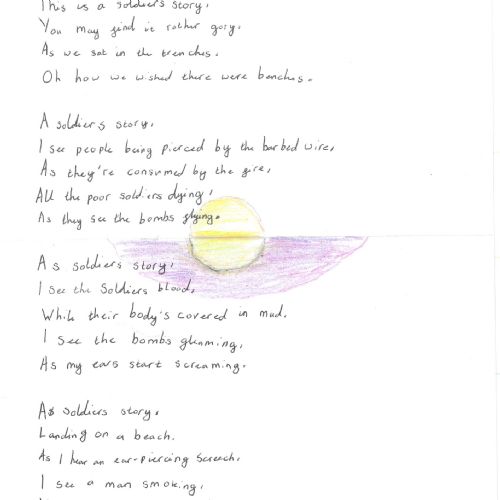 This is a soldiers story,
You may find it rather gory.
As we sat in the trenches,
Oh how we wished there were benches.
A soldiers story,
I see people being pierced by the barbed wire,
As they're consumed by the fire,
All the poor soldiers dying,
As they see the bombs flying.
As soldiers story,
I see the soldiers blood,
While their body's covered in mud.
I see the bombs gleaming,
As my ears start screaming.
As soldiers story,
Landing on a beach.
As I hear an ear-piercing screech,
I see a man smoking,